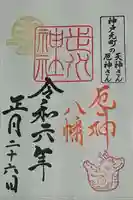 神戸元町の
天神さん
厄神さん
厄神
八幡
神社
令和六年
正月二十六日